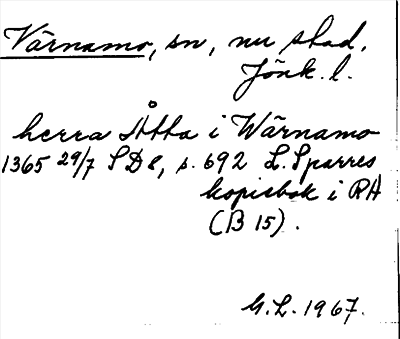 Värnamo, sn, nu stad.
Jönk. l.
herra Åtta i Wärnamo
1365 29/7 SD 8, s. 692 L. Sparres
kopiebok i RA
(B 15).
G.L. 1967.